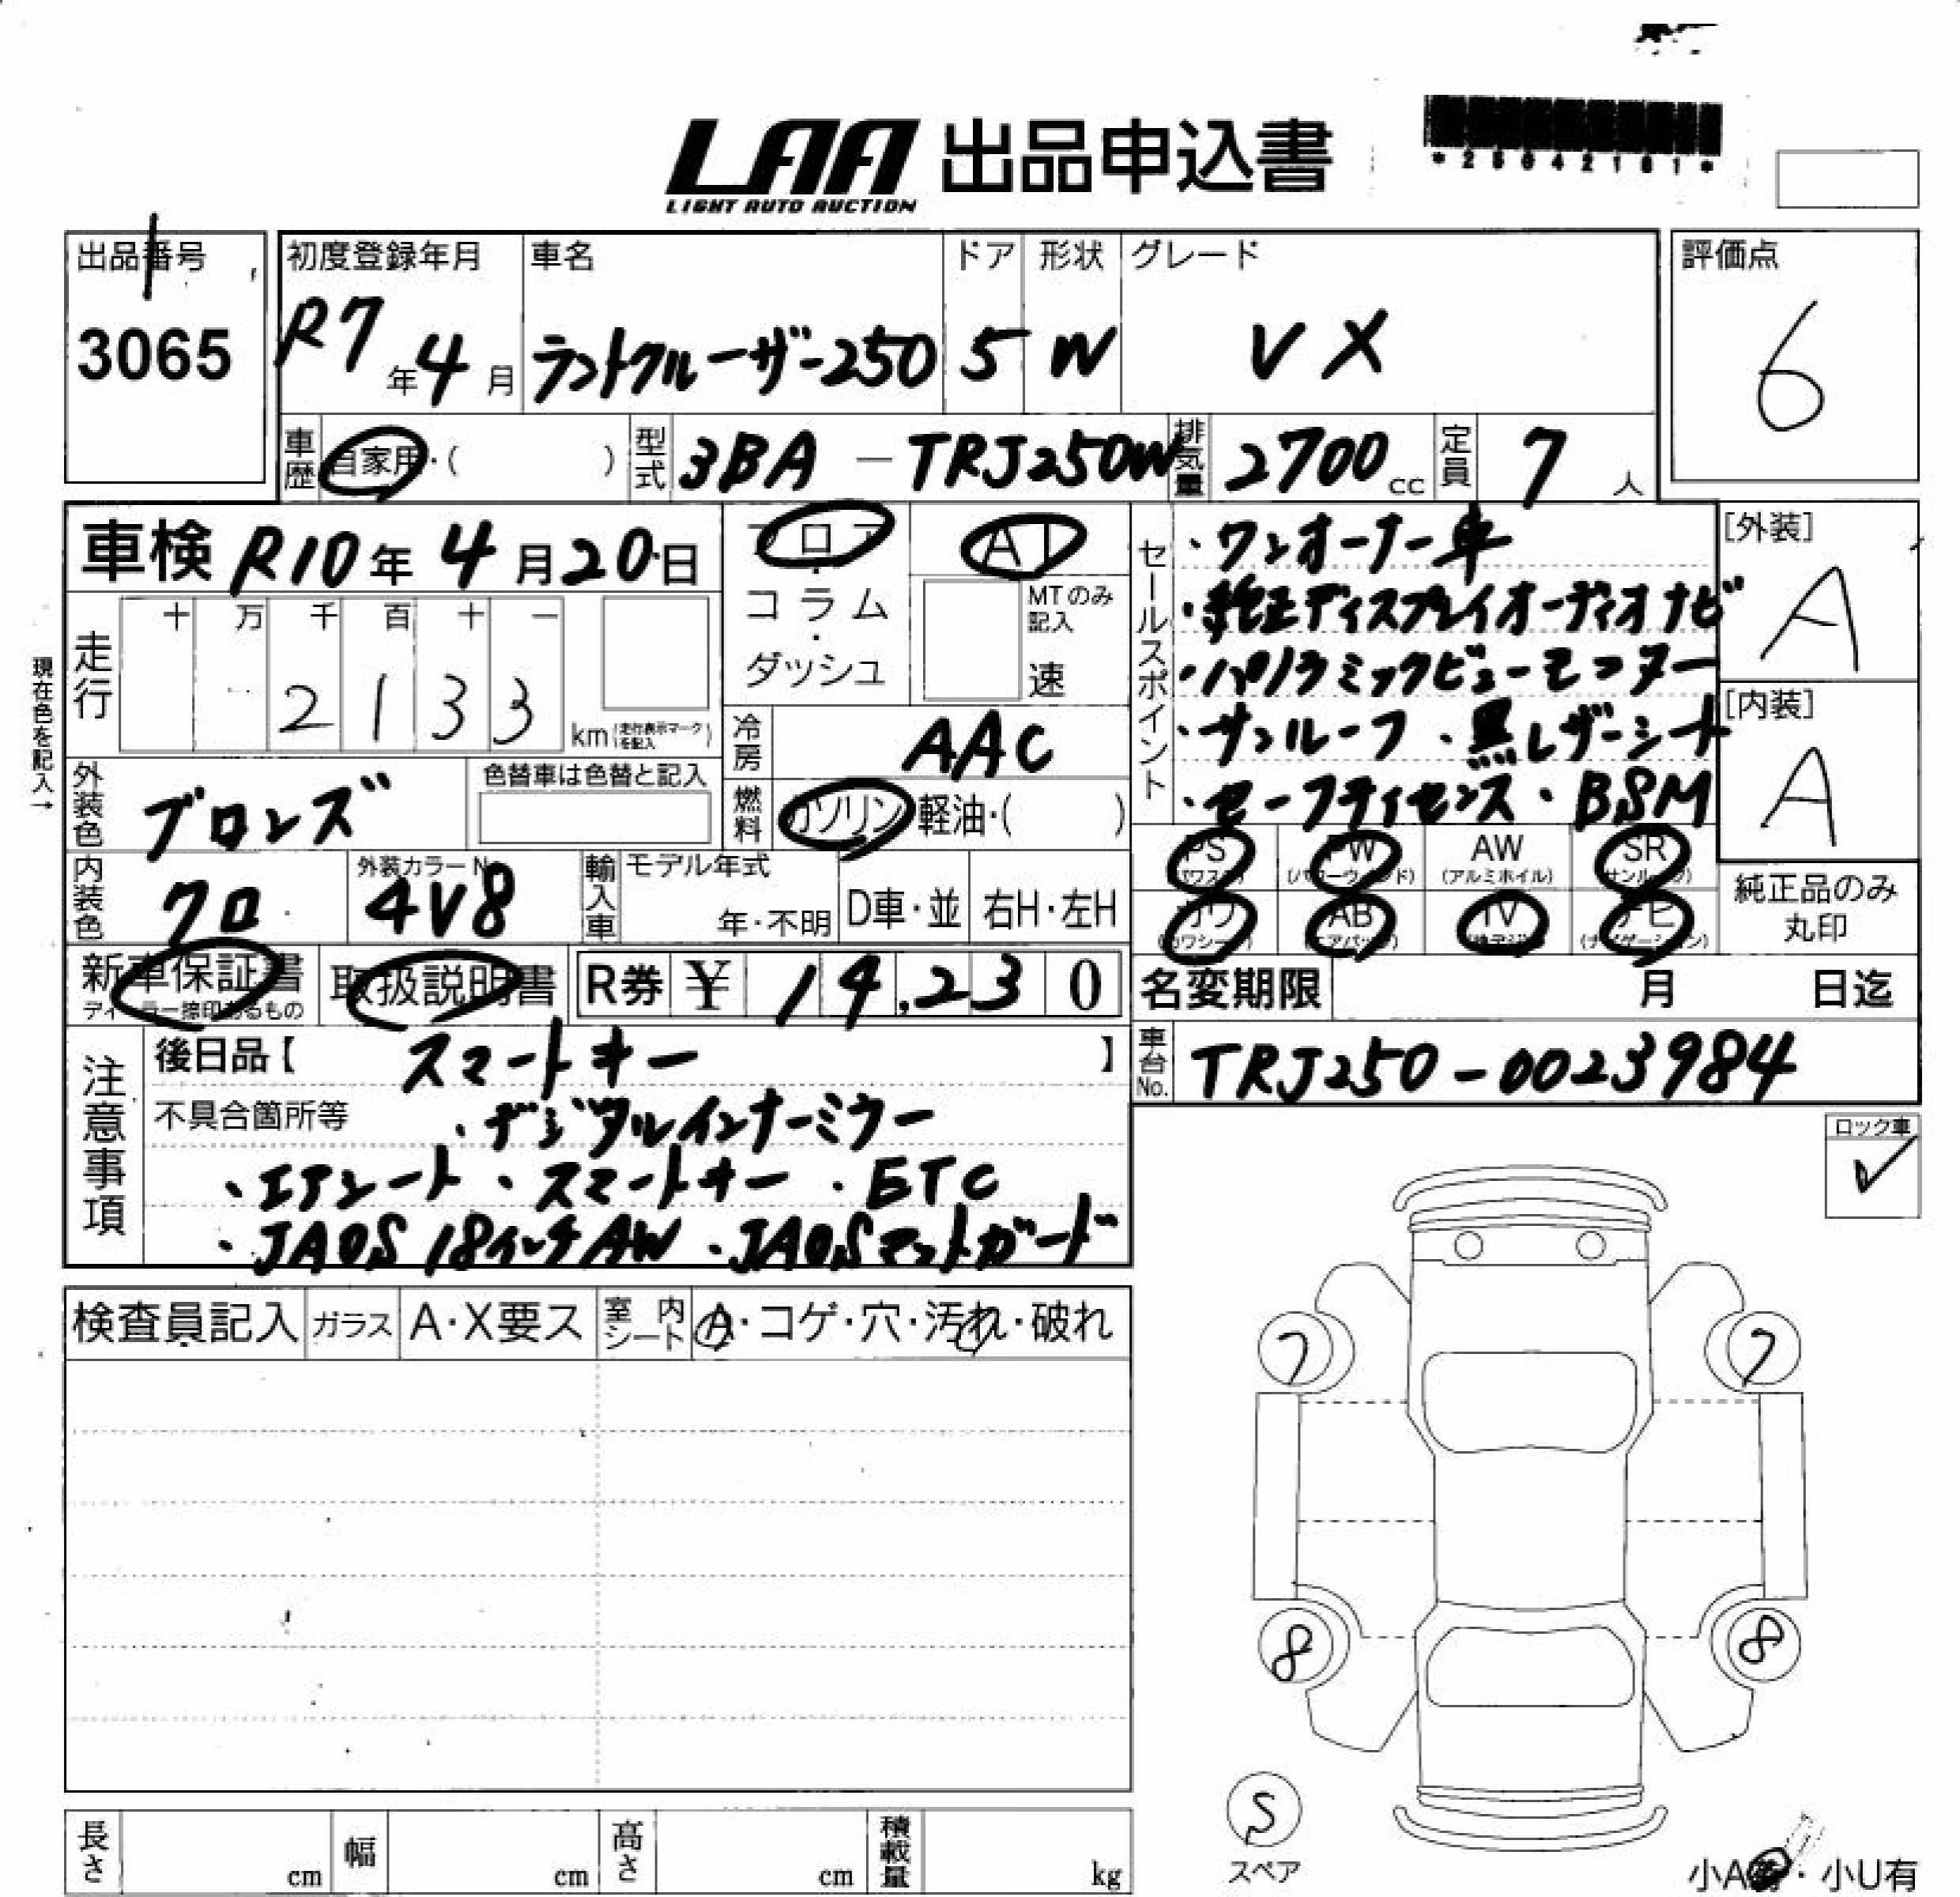 LAA 出品申込書
LIGHT AUTO AUCTION
*25042101*
出品番号
3065
初度登録年月
R7年4月
車名
ランドクルーザー250
ドア
5
形状
W
グレード
VX
評価点
6
車歴
自家用・( )
型式
3BA-TRJ250W
排気量
2700cc
定員
7人
車検 R10年4月20日
フロア・コラム・ダッシュ
AT
MTのみ記入
速
セールスポイント
・ワンオーナー車
・純正ディスプレイオーディオナビ
・パノラミックビューモニター
・サンルーフ ・黒レザーシート
・セーフティセンス ・BSM
[外装]
A
[内装]
A
現在色を記入→
走行
十 万 千 百 十 一
2 1 3 3
km(走行表示マークを記入)
冷房
AAC
外装色
ブロンズ
色替車は色替と記入
燃料
ガソリン 軽油・( )
内装色
クロ
外装カラーNo.
4V8
輸入車
モデル年式
年・不明
D車・並
右H・左H
PS
(パワステ)
PW
(パワーウィンド)
AW
(アルミホイル)
SR
(サンルーフ)
カワ
(カワシート)
AB
(エアバック)
TV
(地デジ)
ナビ
(ナビゲーション)
純正品のみ
丸印
新車保証書
ディーラー捺印あるもの
取扱説明書
R券 ¥ 14,230
名変期限 月 日迄
車台No.
TRJ250-0023984
注意事項
後日品【 スマートキー 】
不具合箇所等 ・デジタルインナーミラー
・エアシート ・スマートキー ・ETC
・JAOS 18インチAW ・JAOSマットガード
ロック車
✓
検査員記入
ガラス
A・X要ス
室内シート
A・コゲ・穴・汚れ・破れ
7
7
8
8
S
スペア
長さ cm
幅 cm
高さ cm
積載量 kg
小A有・小U有